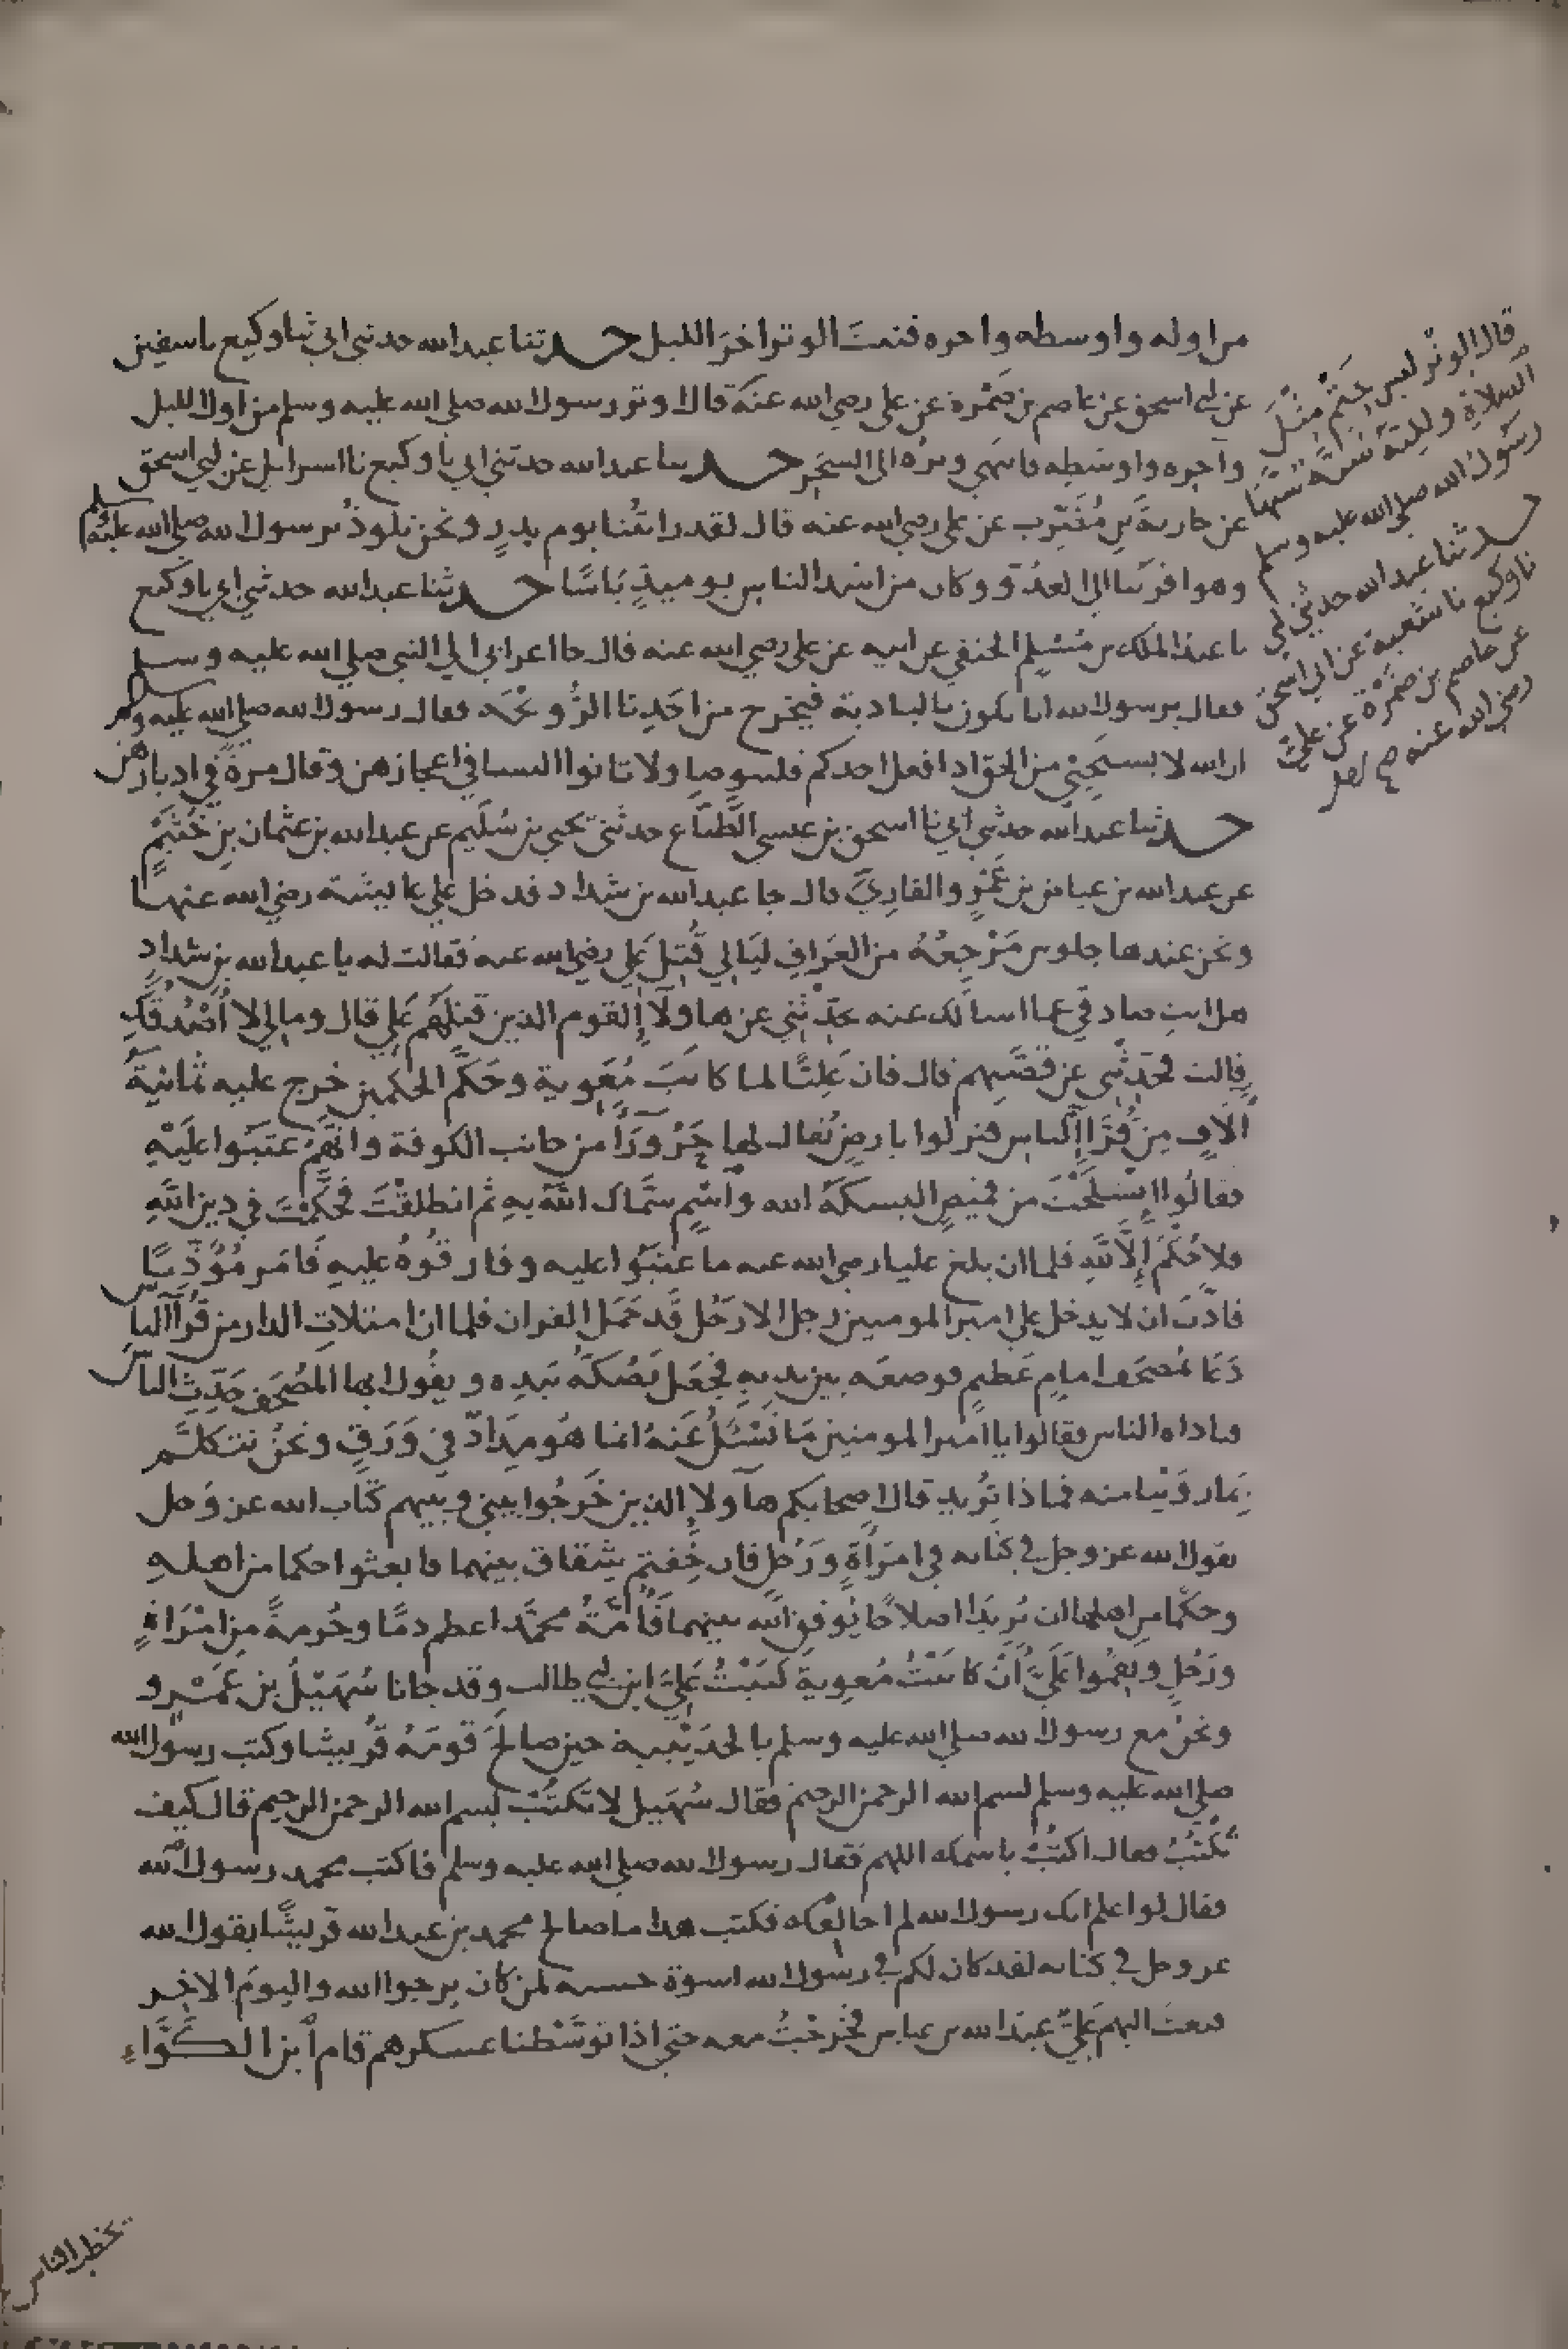 من اوله واوسطه واخره فثبت الوتر اخر الليل حدثنا عبد الله حدثني ابي ثنا وكيع نا سفين
عن ابي اسحق عن عاصم بن ضمرة عن علي رضي الله عنه قال اوتر رسول الله صلى الله عليه وسلم من اول الليل
واخره واوسطه فانتهى وتره الى السحر حدثنا عبد الله حدثني ابي نا وكيع نا اسرايل عن ابي اسحق
عن حارثة بن مُضَرّب عن علي رضي الله عنه قال لقد رايتُنا يوم بدرٍ ونحن نلوذُ برسول الله صلى الله عليه وسلم
وهو اقربنا الى العدُوّ وكان من اشد الناس يوميذٍ بَاسًا حدثنا عبد الله حدثني ابي نا وكيع
نا عبد الملك بن مُسْلِم الحنفي عن ابيه عن علي رضي الله عنه قال جا اعرابي الى النبي صلى الله عليه وسلم
فقال يرسول الله انا نكون بالبادية فيخرج من احَدِنا الرُّوَيْحَه فقال رسول الله صلى الله عليه وسلم
ان الله لا يستَحْيِي من الحق اذا فعل احدكم فليتوضا ولا تاتوا النسا في اعجازهن وقال مرةً في ادبارهن
حدثنا عبد الله حدثني ابي نا اسحق بن عيسى الطَّبَّاع حدثني يحيى بن سُلَيم عن عبد الله بن عثمان بن خُثَيْمٍ
عن عبد الله بن عياض بن عَمْرٍو القاريّ قال جا عبد الله بن شداد فدخل على عايشة رضي الله عنها
ونحن عندها جلوس مَرْجِعُهُ من العراق ليَالي قُتِلَ عَلي رضي الله عنه فقالت له يا عبد الله بن شداد
هل انت صادقي عما اسالك عنه حَدِّثْني عن هاولآءِ القوم الذين قتلَهُم عَلي قال وما لي لا اَصْدُقُكِ
قالت فحَدِّثْني عن قصَّتِهم قال فان عَليًّا لما كاتَبَ مُعَوية وحَكَّم الحكمين خرج عليه ثمانيةُ
آلافٍ مِن قُرَّآءِ الناس فنزلوا بارضٍ يُقال لها حَرُورَآءُ من جانب الكوفة وانَّهُمْ عتَبُوا علَيْهِ
فقالُوا انْسَلَخْتَ من قميصٍ البسكَهُ الله واسْمٍ سَمَّاك اللهُ بِهِ ثم انطلقْتَ فحَكَّمْتَ في دين اللهِ
فلا حُكْمَ اِلَّا لِلّهِ فلما ان بلغ عليا رضي الله عنه ما عتَبُوا عليه وفارقُوهُ عليهِ فَامَر مُؤَذِّنًا
فاذّنَ ان لا يدخل على امير المومنين رجل الا رَجُل قَد حَمَلَ القران فلما ان امتلاتِ الدار من قُرّآءِ الناس
دَعَا بمُصحَفٍ امامٍ عَظيمٍ فوضعَه بين يديهِ فجعَل يَصُكّهُ بيَدِه ويقُول ايها المُصْحَف حَدّثِ الناسَ
فناداه الناس فقالوا يا امير المومنين مَا تَسْئَلُ عَنهُ انما هُو مِدَادٌ في وَرَقٍ ونحنُ نتكلَّم
بِمَا رَوَيْنا منه فماذا تُريد قال اصحابكم هآولآءِ الذين خَرجُوا بيني وبينهم كتاب الله عز وجل
يقول الله عز وجل في كتابه في امرَاةٍ ورَجُلٍ فان خِفتم شقاق بينهما فابعثوا حكما من اهلهِ
وحكمًا من اهلها ان يُرِيدَا اصلاحًا يُوفِق الله بينهما فَاُمَّةُ محمَّد اعظم دمًا وحُرمةً مِن امْرَاةٍ
ورَجُلٍ ونقَمُوا عَلَيَّ اَنْ كاتَبْتُ مُعويةَ كتَبْتُ عَليُّ ابن ابي طالب وقد جانا سُهَيْلُ بن عَمْرٍو
ونحنُ مع رسول الله صلى الله عليه وسلم بالحدَيْبية حين صالحَ قومَهُ قُريشا وكتب رسول الله
صلى الله عليه وسلم بسم الله الرحمن الرحيم فقال سُهَيل لا تكتُبْ بسم الله الرحمن الرحيم قال كيف
نكتُبُ فقال اكتُبْ باسمك اللهم فقال رسول الله صلى الله عليه وسلم فاكتب محمد رسول الله
فقال لو اعلم انك رسول الله لم اخالفك فكتب هذا ما صالح محمد بن عبد الله قريشًا يقول الله
عز وجل في كتابه لقد كان لكم في رسول الله اسوة حسنه لمن كان يرجوا الله واليومَ الاخِر
فبعثَ اليهم عَليٌّ عبدَ الله بن عباس فخرجْتُ معه حتى اذا توسَّطنا عسكرهم قام ابن الكوَّاءِ
قال الوتر ليس بِحَتْمٍ مثْلَ
الصلاةِ ولكنَّه سُنَّة سَنَّهَا
رسول الله صلى الله عليه وسلم
حدثنا عبد الله حدثني ابي
نا وكيع نا شعبة عن ابي اسحق
عن عاصم بن ضَمْرة عن علي
رضي الله عنه صح اصل
يخطب الناس